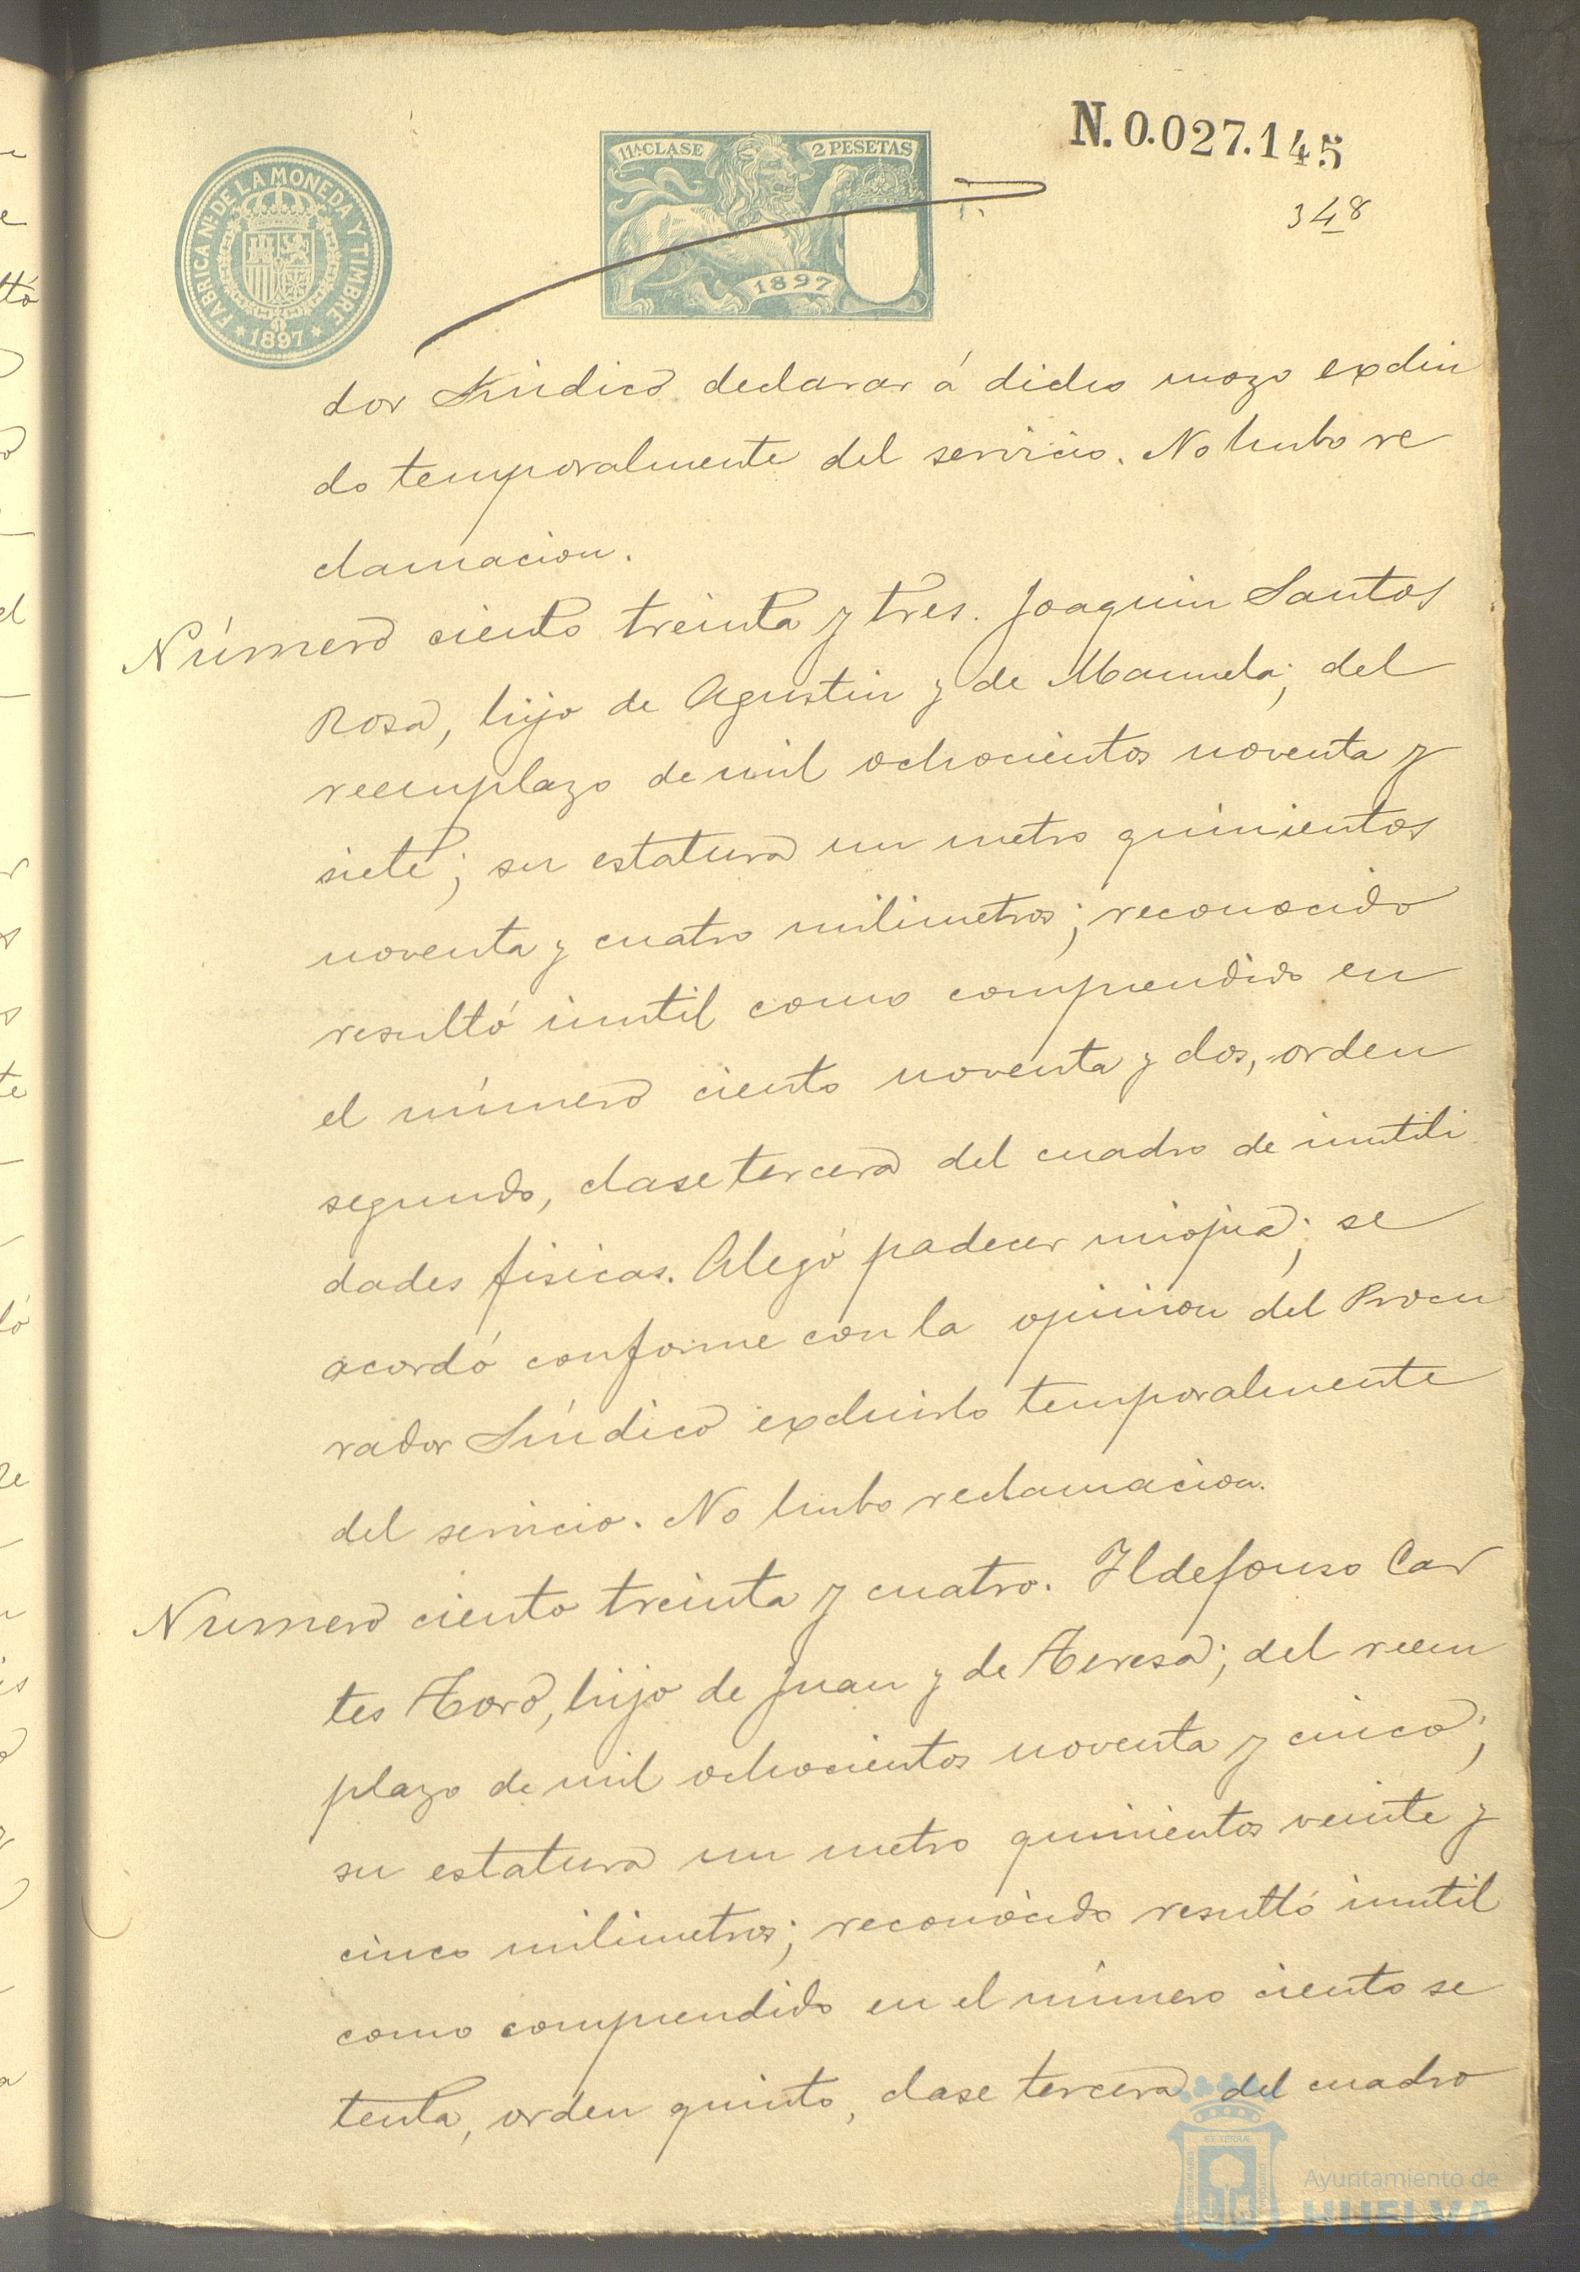 N. 0.027.145
348
11ª CLASE 2 PESETAS
1897
FÁBRICA Nˡ DE LA MONEDA Y TIMBRE
* 1897 *
dor Síndico declarar á dicho mozo exclui
do temporalmente del servicio. No hubo re
clamacion.
Número ciento treinta y tres. Joaquin Santos
Rosa, hijo de Agustin y de Manuela; del
reemplazo de mil ochocientos noventa y
siete; su estatura un metro quinientos
noventa y cuatro milimetros; reconocido
resultó inutil como comprendido en
el número ciento noventa y dos, orden
segundo, clase tercera del cuadro de inutili
dades fisicas. Alegó padecer miopia; se
acordó conforme con la opinion del Procu
rador Síndico excluirlo temporalmente
del servicio. No hubo reclamacion.
Numero ciento treinta y cuatro. Ildefonso Car
tes Toro, hijo de Juan y de Teresa; del reem
plazo de mil ochocientos noventa y cinco;
su estatura un metro quinientos veinte y
cinco milimetros; reconocido resultó inutil
como comprendido en el número ciento se
tenta, orden quinto, clase tercera del cuadro
Ayuntamiento de
HUELVA